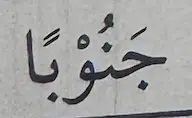 جَنُوْبًا